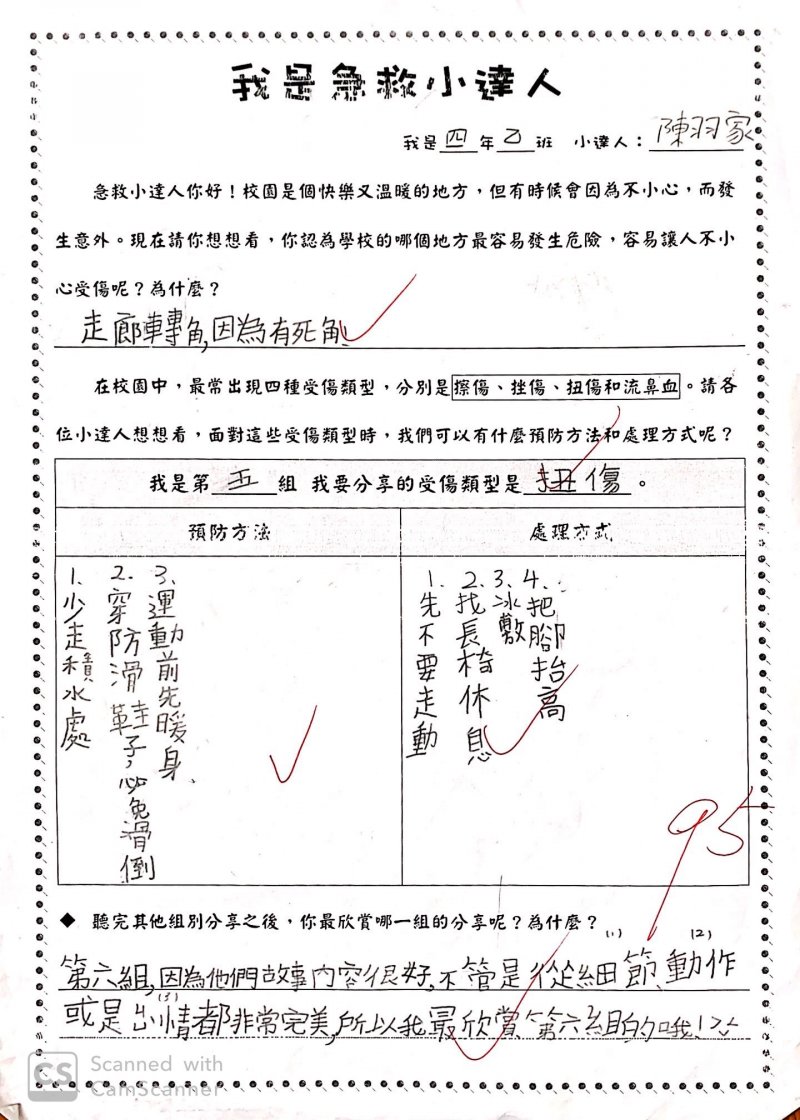 我是急救小達人
我是四年乙班 小達人：陳羽家
急救小達人你好！校園是個快樂又溫暖的地方，但有時候會因為不小心，而發
生意外。現在請你想想看，你認為學校的哪個地方最容易發生危險，容易讓人不小
心受傷呢？為什麼？
走廊轉角，因為有死角、
在校園中，最常出現四種受傷類型，分別是擦傷、挫傷、扭傷和流鼻血。請各
位小達人想想看，面對這些受傷類型時，我們可以有什麼預防方法和處理方式呢？
我是第五組 我要分享的受傷類型是扭傷。
預防方法
處理方式
1.少走積水處
2.穿防滑鞋子，必免滑倒
3.運動前先暖身、
1.先不要走動
2.找長椅休息
3.冰敷
4.把腳抬高
95
◆ 聽完其他組別分享之後，你最欣賞哪一組的分享呢？為什麼？
(1) (2)
第六組，因為他們故事內容很好，不管是從細節、動作
(3)
或是出情都非常完美，所以我最欣賞第六組的哦！
CS Scanned with
CamScanner